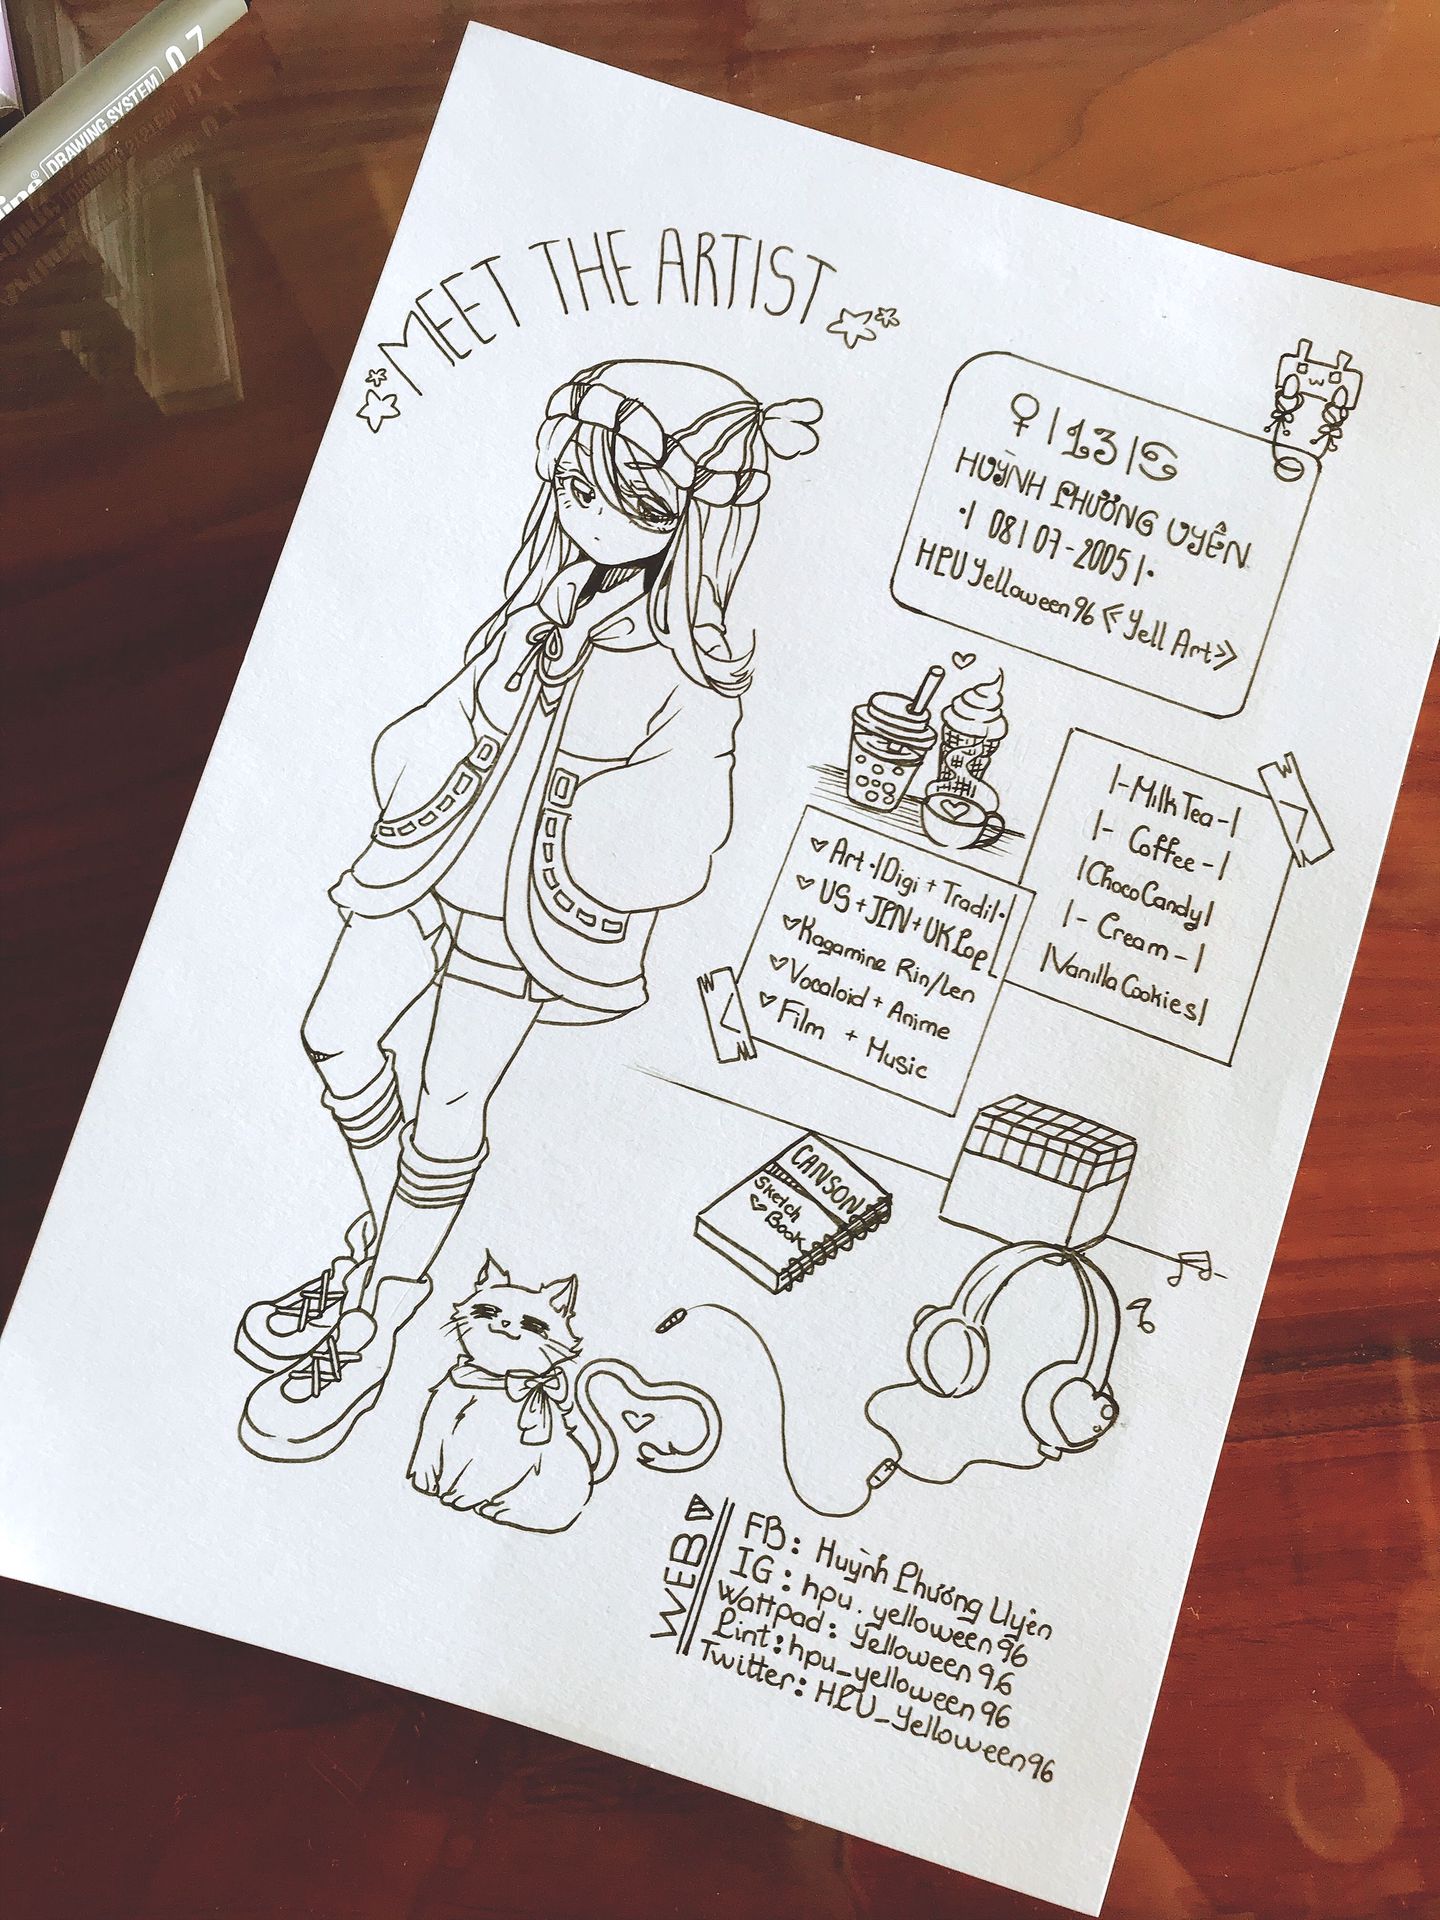 DRAWING SYSTEM 0.7
MEET THE ARTIST
♀ | 13 | ♋
HUỲNH PHƯƠNG UYÊN
·| 08 | 07 - 2005 |·
HPU Yelloween96 «Yell Art»
|-Milk Tea-|
|- Coffee -|
|Choco Candy|
|- Cream -|
|Vanilla Cookies|
♡ Art ·|Digi + Tradi|·
♡ US + JPN + UK Pop
♡ Kagamine Rin/Len
♡ Vocaloid + Anime
♡ Film + Music
CANSON
Sketch
♡ Book
WEB
FB: Huỳnh Phương Uyên
IG: hpu.yelloween96
Wattpad: Yelloween96
Pint: hpu_yelloween96
Twitter: HPU_Yelloween96